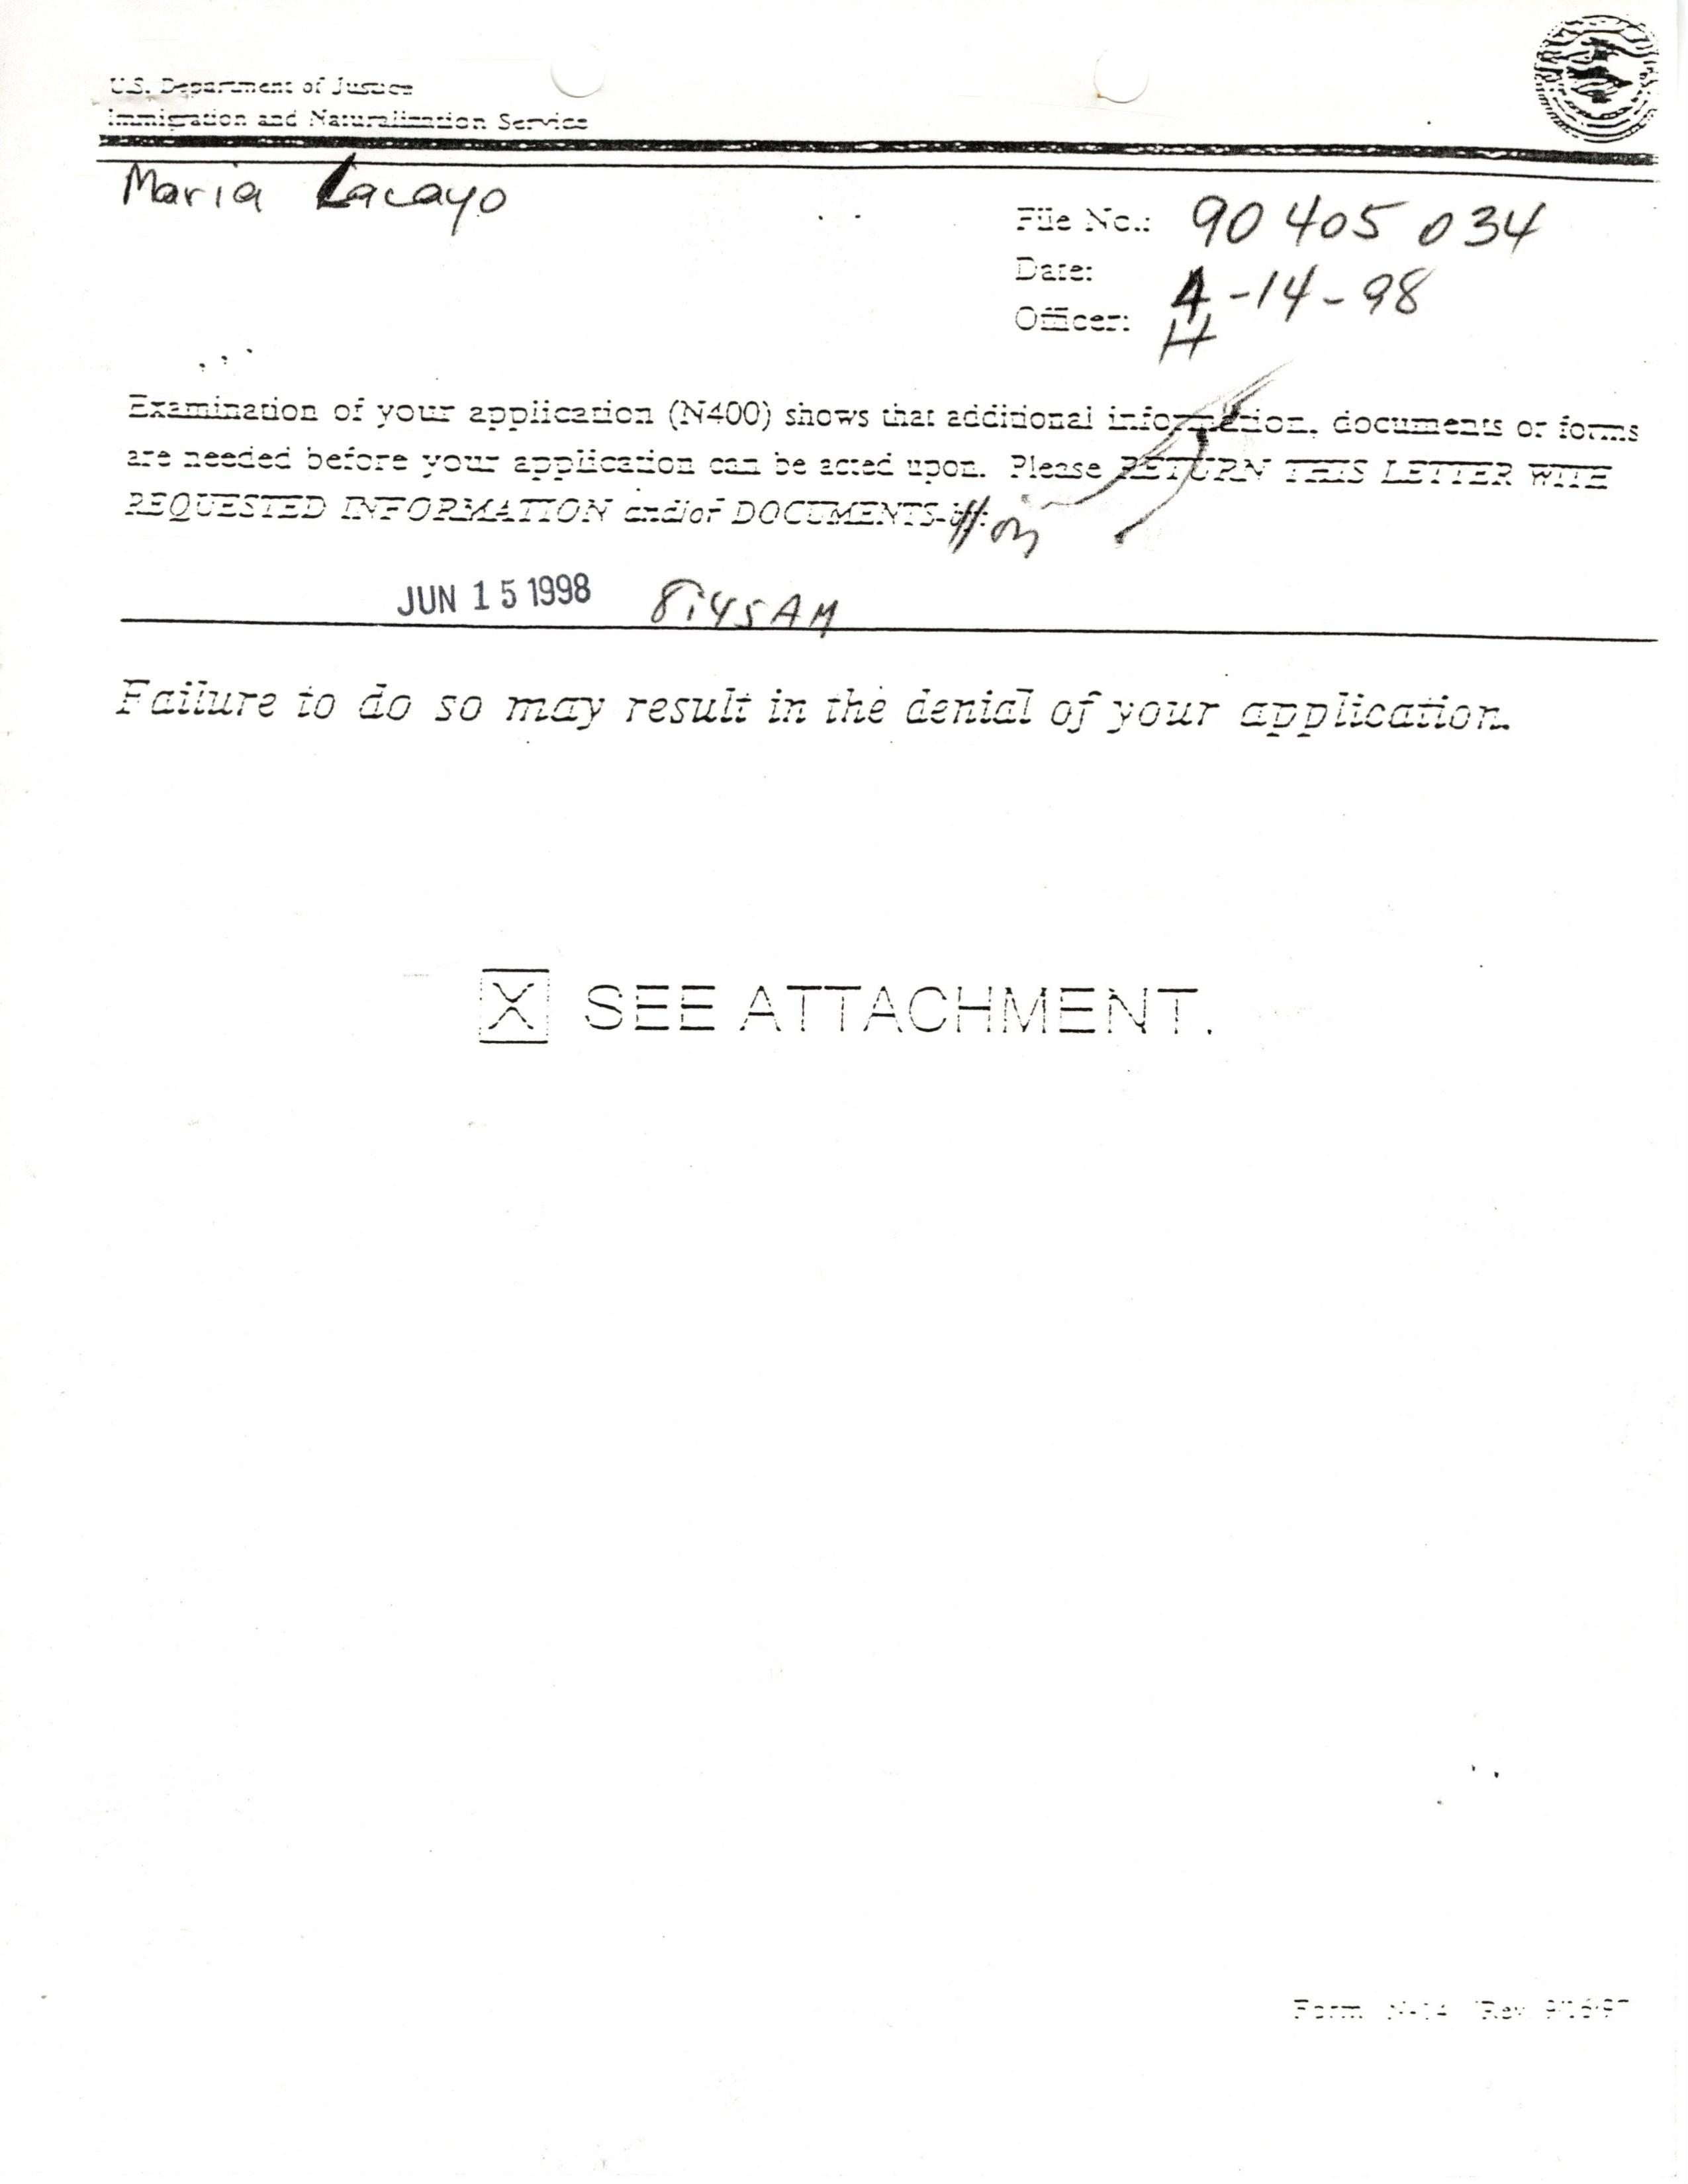 U.S. Department of Justice
Immigration and Naturalization Service
Maria Lacayo
File No.: 90 405 034
Date: 4-14-98
Officer: H
Examination of your application (N400) shows that additional information, documents or forms
are needed before your application can be acted upon. Please RETURN THIS LETTER WITH
REQUESTED INFORMATION and/or DOCUMENTS on
JUN 15 1998 8:45 AM
Failure to do so may result in the denial of your application.
X SEE ATTACHMENT.
Form N-14 Rev